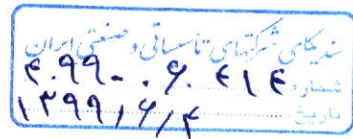 سندیکای شرکتهای تاسیساتی و صنعتی ایران
شماره ۴۰۹۹-۰۶۰۴۱۴
تاریخ ۱۳۹۹/۶/۴